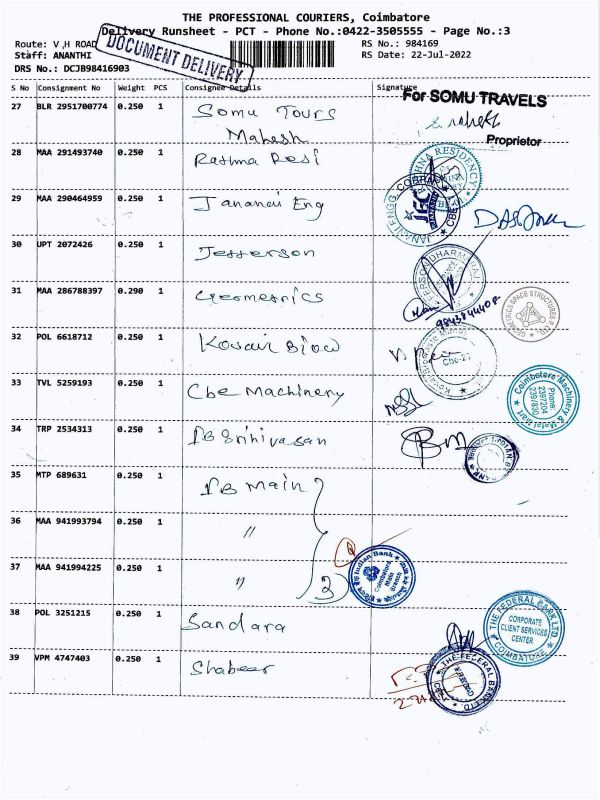 THE PROFESSIONAL COURIERS, Coimbatore
Delivery Runsheet - PCT - Phone No.:0422-3505555 - Page No.:3
Route: V,H ROAD
RS No.: 984169
Staff: ANANTHI
RS Date: 22-Jul-2022
DRS No.: DCJB98416903
DOCUMENT DELIVERY
S No Consignment No Weight PCS Consignee Details Signature
27 BLR 2951700774 0.250 1 Somu Tours
Mahesh
For SOMU TRAVELS
Proprietor
28 MAA 291493740 0.250 1 Rathna Resi
29 MAA 290464959 0.250 1 Jananai Eng
30 UPT 2072426 0.250 1 Jefferson
31 MAA 286788397 0.290 1 Geometrics
9843844408
32 POL 6618712 0.250 1
33 TVL 5259193 0.250 1 Cbe Machinery
Coimbatore Machinery & Metal Mart
Phone
2397204
34 TRP 2534313 0.250 1 IB Srinivasan
35 MTP 689631 0.250 1 IB Main
36 MAA 941993794 0.250 1 "
37 MAA 941994225 0.250 1 " 3
Indian Bank
Coimbatore
Main
Branch
38 POL 3251215 0.250 1 Sandara
THE FEDERAL BANK LTD
CORPORATE
CLIENT SERVICES
CENTER
COIMBATORE
39 VPM 4747403 0.250 1 Shabeer
THE FEDERAL BANK LTD